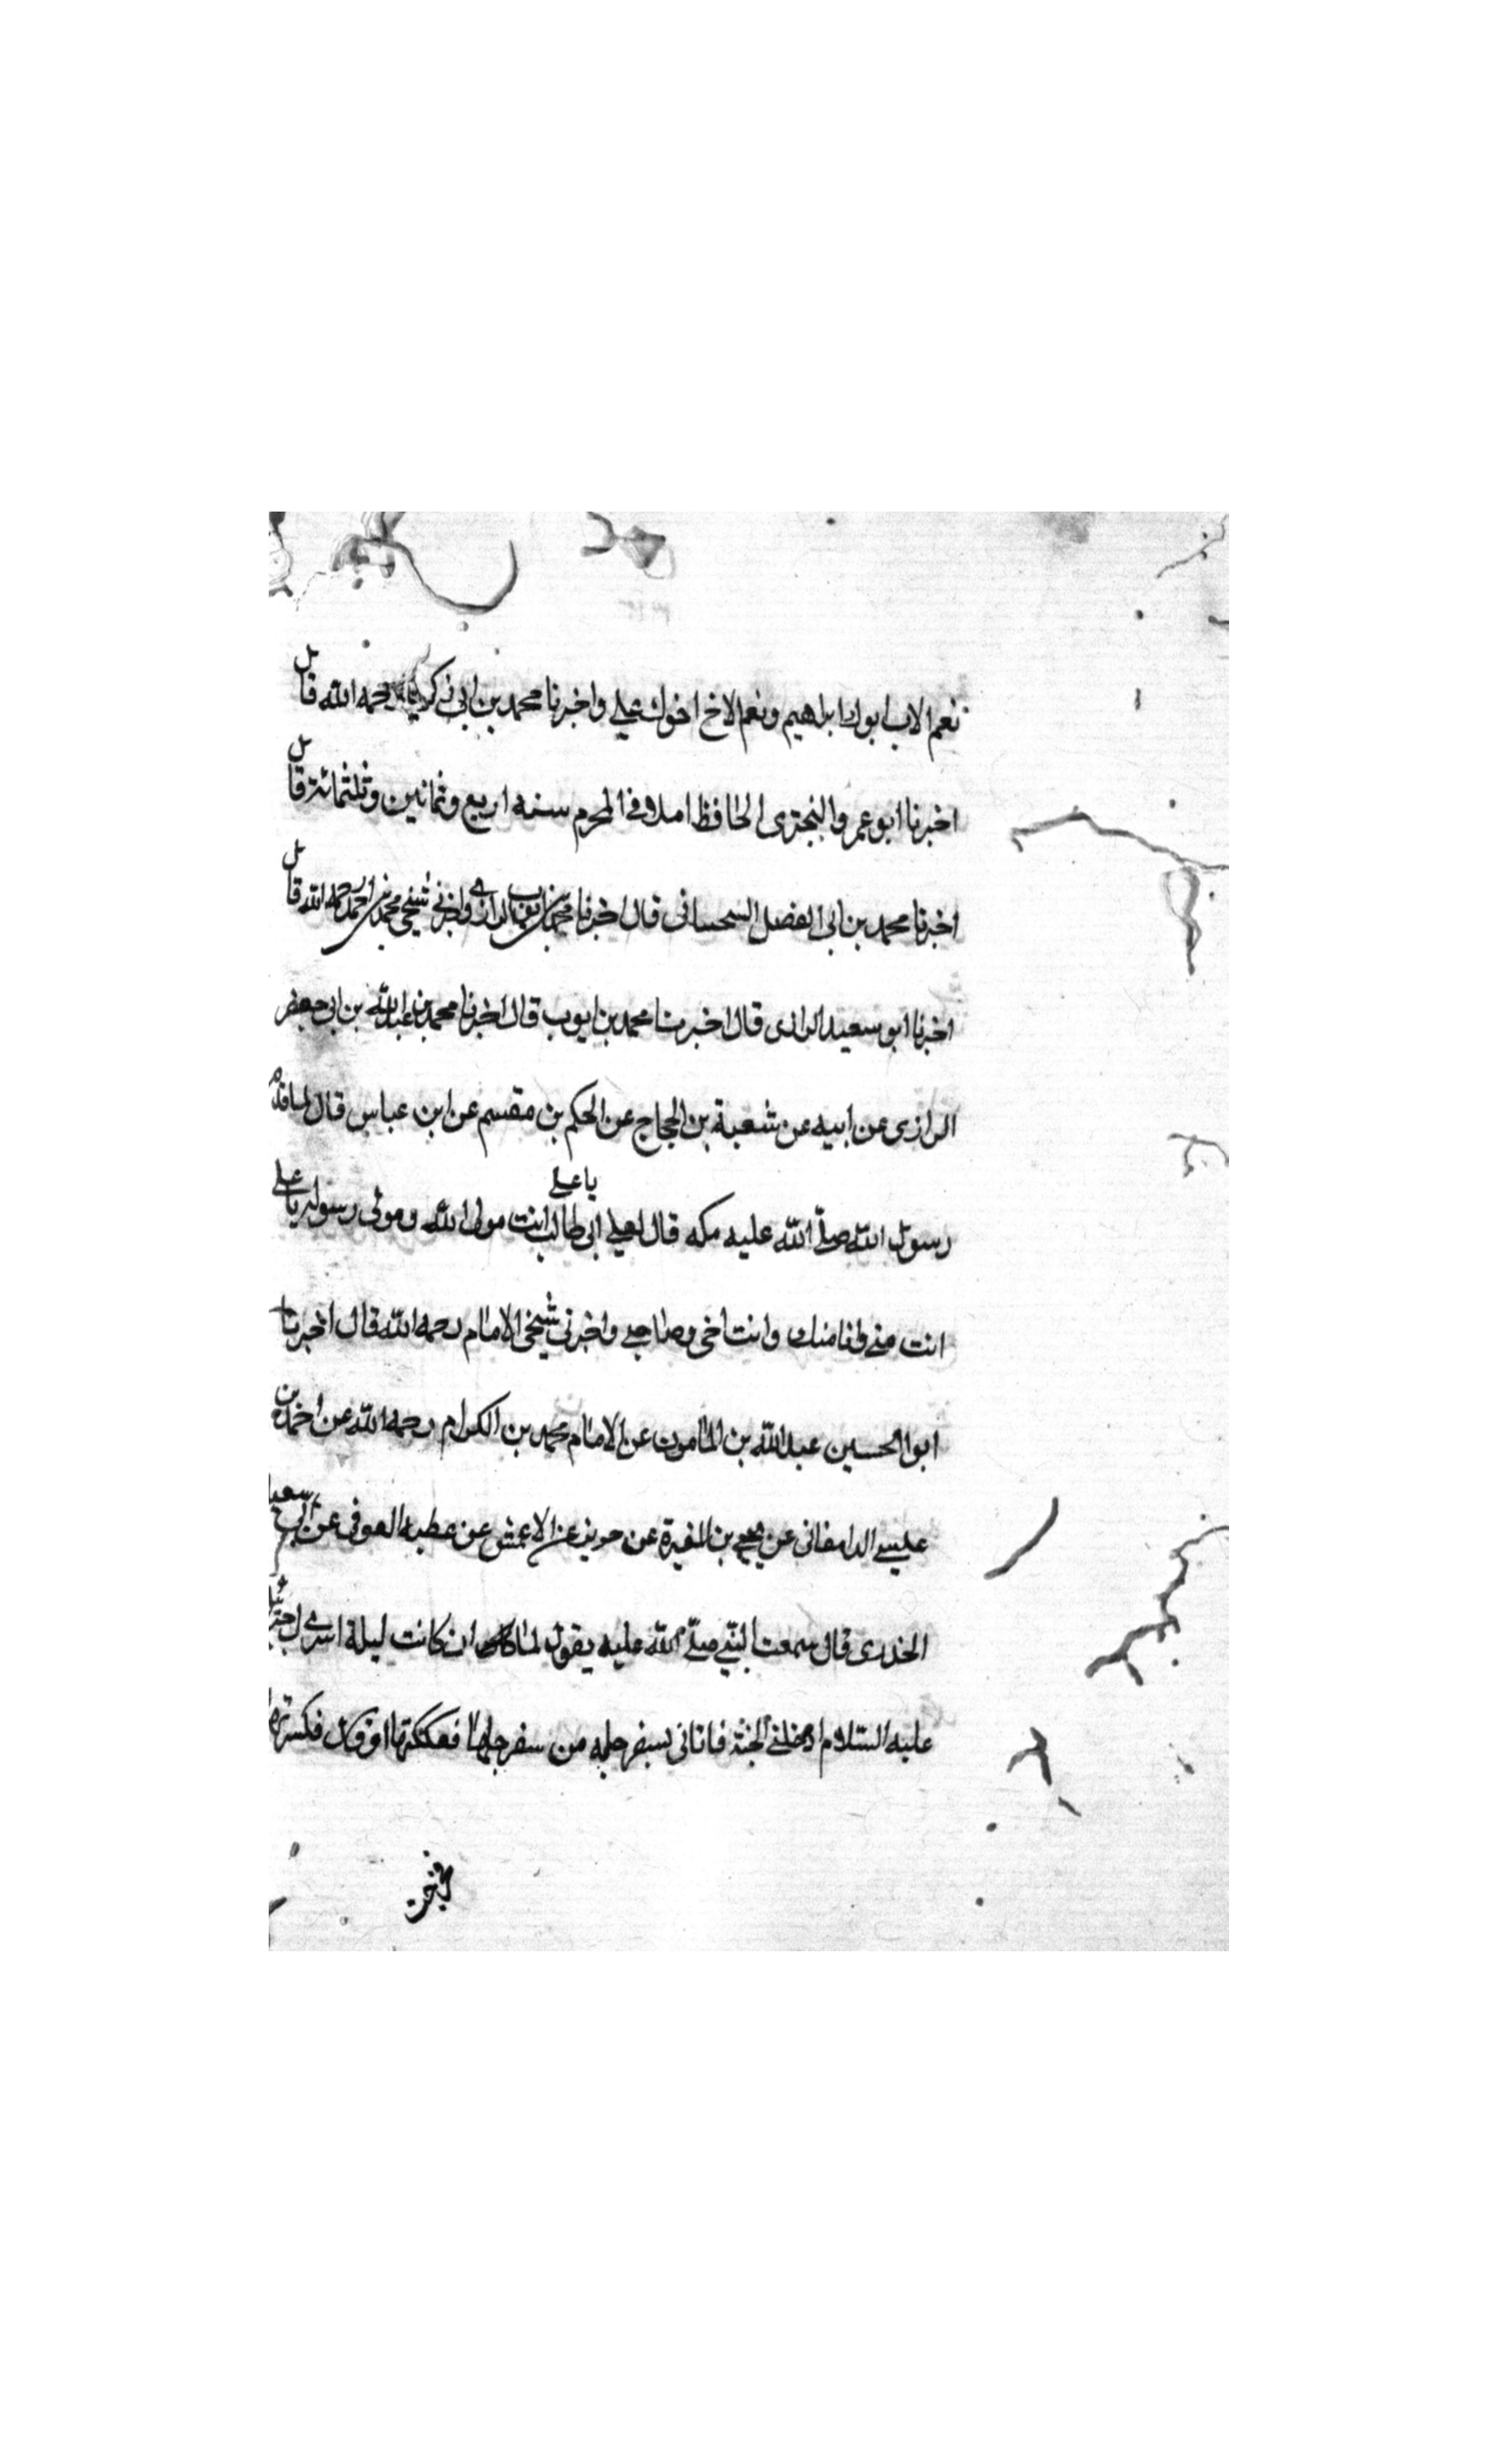 نعم الاب ابوك ابراهيم ونعم الاخ اخوك علي واخبرنا محمد بن ابي زكريا رحمه الله قال
اخبرنا ابو عمرو البحتري الحافظ املا في المحرم سنه اربع وثمانين وثلثمائة قال
اخبرنا محمد بن ابي الفضل السحساني قال اخبرنا محمد بن ايوب الرازي واخبرني شيخي محمد بن احمد رحمه الله قال
اخبرنا ابو سعيد الرازي قال اخبرنا محمد بن ايوب قال اخبرنا محمد بن عبد الله بن ابي جعفر
الرازي عن ابيه عن شعبة بن الحجاج عن الحكم بن مقسم عن ابن عباس قال لما قدم
رسول الله صلى الله عليه مكه قال لعلي ابي طالب يا علي انت مولى الله ومولى رسوله يا علي
انت مني وانا منك وانت اخي وصاحبي واخبرني شيخي الامام رحمه الله قال اخبرنا
ابو الحسين عبد الله بن المامون عن الامام محمد بن الكرام رحمه الله عن احمد بن
عيسى الدامغاني عن يحيى بن المغيرة عن جرير عن الاعمش عن عطيه العوفي عن ابي سعيد
الخدري قال سمعت النبي صلى الله عليه يقول لما ان كانت ليلة اسري
عليه السلام ادخلني الجنة فاتاني بسفرجله من سفرجلها فككتها او قال فكسرتها
فخرجت